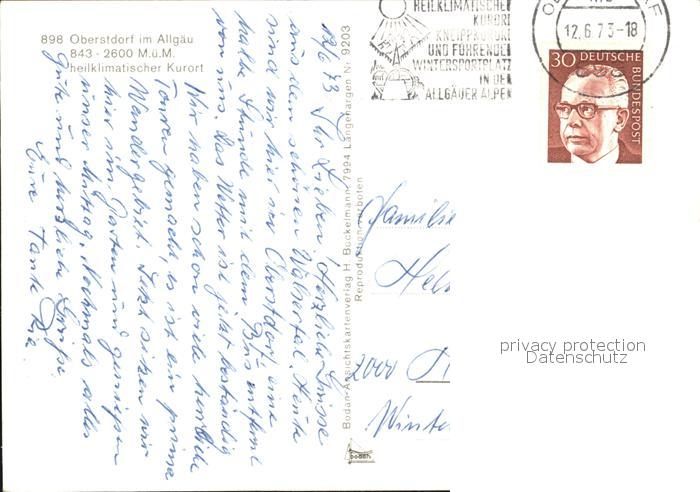 898 Oberstdorf im Allgäu
843 - 2600 M.ü.M.
heilklimatischer Kurort
12/6 73. Ihr Lieben! Herzliche Grüsse
aus dem schönen Walsertal. Heute
sind wir hier in Oberstdorf eine
halbe Stunde mit dem Bus entfernt
von uns. Das Wetter ist jetzt beständig
Wir haben schon viele herrliche
Touren gemacht, es ist ein prima
Wandergebiet. Jetzt sitzen wir
hier im Garten und geniessen
unser Mittag. Nochmals alles
Gute und herzliche Grüsse
Eure Tante
Bodan-Ansichtskartenverlag H. Bockelmann, 7994 Langenargen Nr. 9203
Reproduktion verboten
bodan
HEILKLIMATISCHER
KURORT
KNEIPPKURORT
UND FÜHRENDER
WINTERSPORTPLATZ
IN DEN
ALLGÄUER ALPEN
12.6.73-18
30 DEUTSCHE
BUNDESPOST
Familie
Hel
2000
Winte
privacy protection
Datenschutz